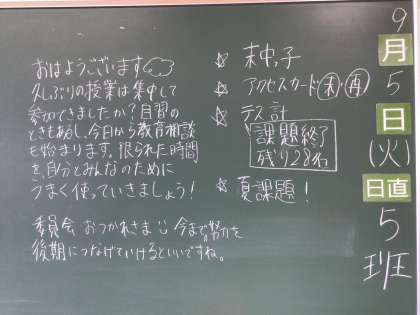 9
月
5
日
(火)
日直
5
班
おはようございます
久しぶりの授業は集中して
参加できましたか?自習の
ときもあるし、今日から教育相談
も始まります。限られた時間
を、自分とみんなのために
うまく使っていきましょう!
委員会 おつかれさま 今までの努力を
後期につなげていけるといいですね。
☆
☆ アクセスカード(未)(再)
☆ テス計
課題終了
残り28名
☆ 夏課題!